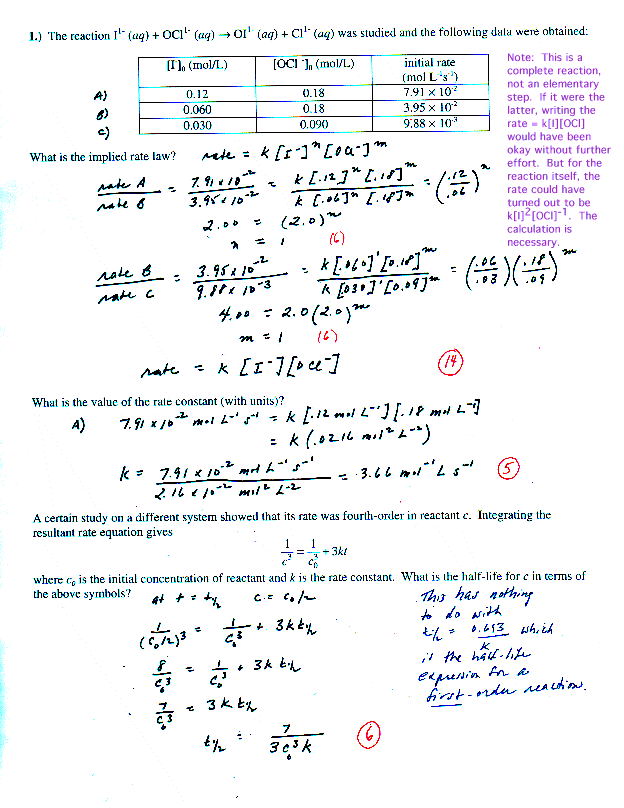 1.) The reaction I¹⁻ (aq) + OCl¹⁻ (aq) → OI¹⁻ (aq) + Cl¹⁻ (aq) was studied and the following data were obtained:
[I⁻]₀ (mol/L) [OCl⁻]₀ (mol/L) initial rate (mol L⁻¹s⁻¹)
A) 0.12 0.18 7.91 × 10⁻²
B) 0.060 0.18 3.95 × 10⁻²
C) 0.030 0.090 9.88 × 10⁻³
Note: This is a
complete reaction,
not an elementary
step. If it were the
latter, writing the
rate = k[I][OCl]
would have been
okay without further
effort. But for the
reaction itself, the
rate could have
turned out to be
k[I]²[OCl]⁻¹. The
calculation is
necessary.
What is the implied rate law? rate = k [I⁻]ⁿ [OCl⁻]ᵐ
rate A / rate B = 7.91 x 10⁻² / 3.95 x 10⁻² = k [.12]ⁿ [.18]ᵐ / k [.06]ⁿ [.18]ᵐ = (.12/.06)ⁿ
2.00 = (2.0)ⁿ
n = 1 (6)
rate B / rate C = 3.95 x 10⁻² / 9.88 x 10⁻³ = k [.060]¹ [0.18]ᵐ / k [030]¹ [0.09]ᵐ = (.06/.03)(.18/.09)ᵐ
4.00 = 2.0 (2.0)ᵐ
m = 1 (6)
rate = k [I⁻][OCl⁻] (14)
What is the value of the rate constant (with units)?
A) 7.91 x 10⁻² mol L⁻¹ s⁻¹ = k [.12 mol L⁻¹][.18 mol L⁻¹]
= k (.0216 mol² L⁻²)
k = 7.91 x 10⁻² mol L⁻¹ s⁻¹ / 2.16 x 10⁻² mol² L⁻² = 3.66 mol⁻¹ L s⁻¹ (5)
A certain study on a different system showed that its rate was fourth-order in reactant c. Integrating the
resultant rate equation gives
1/c³ = 1/c₀³ + 3kt
where c₀ is the initial concentration of reactant and k is the rate constant. What is the half-life for c in terms of
the above symbols? at t = t½ c = c₀/2
1/(c₀/2)³ = 1/c₀³ + 3kt½
8/c₀³ = 1/c₀³ + 3kt½
7/c₀³ = 3kt½
t½ = 7/3c₀³k (6)
This has nothing
to do with
t½ = 0.693/k which
is the half-life
expression for a
first-order reaction.